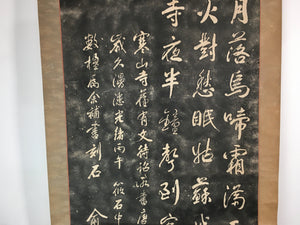 月落烏啼霜滿
火對愁眠姑蘇城
寺夜半鐘聲到客
寒山寺舊有文待詔所書唐
歲久漫漶光緒丙午筱石中
數楹屬余補書刻石 俞